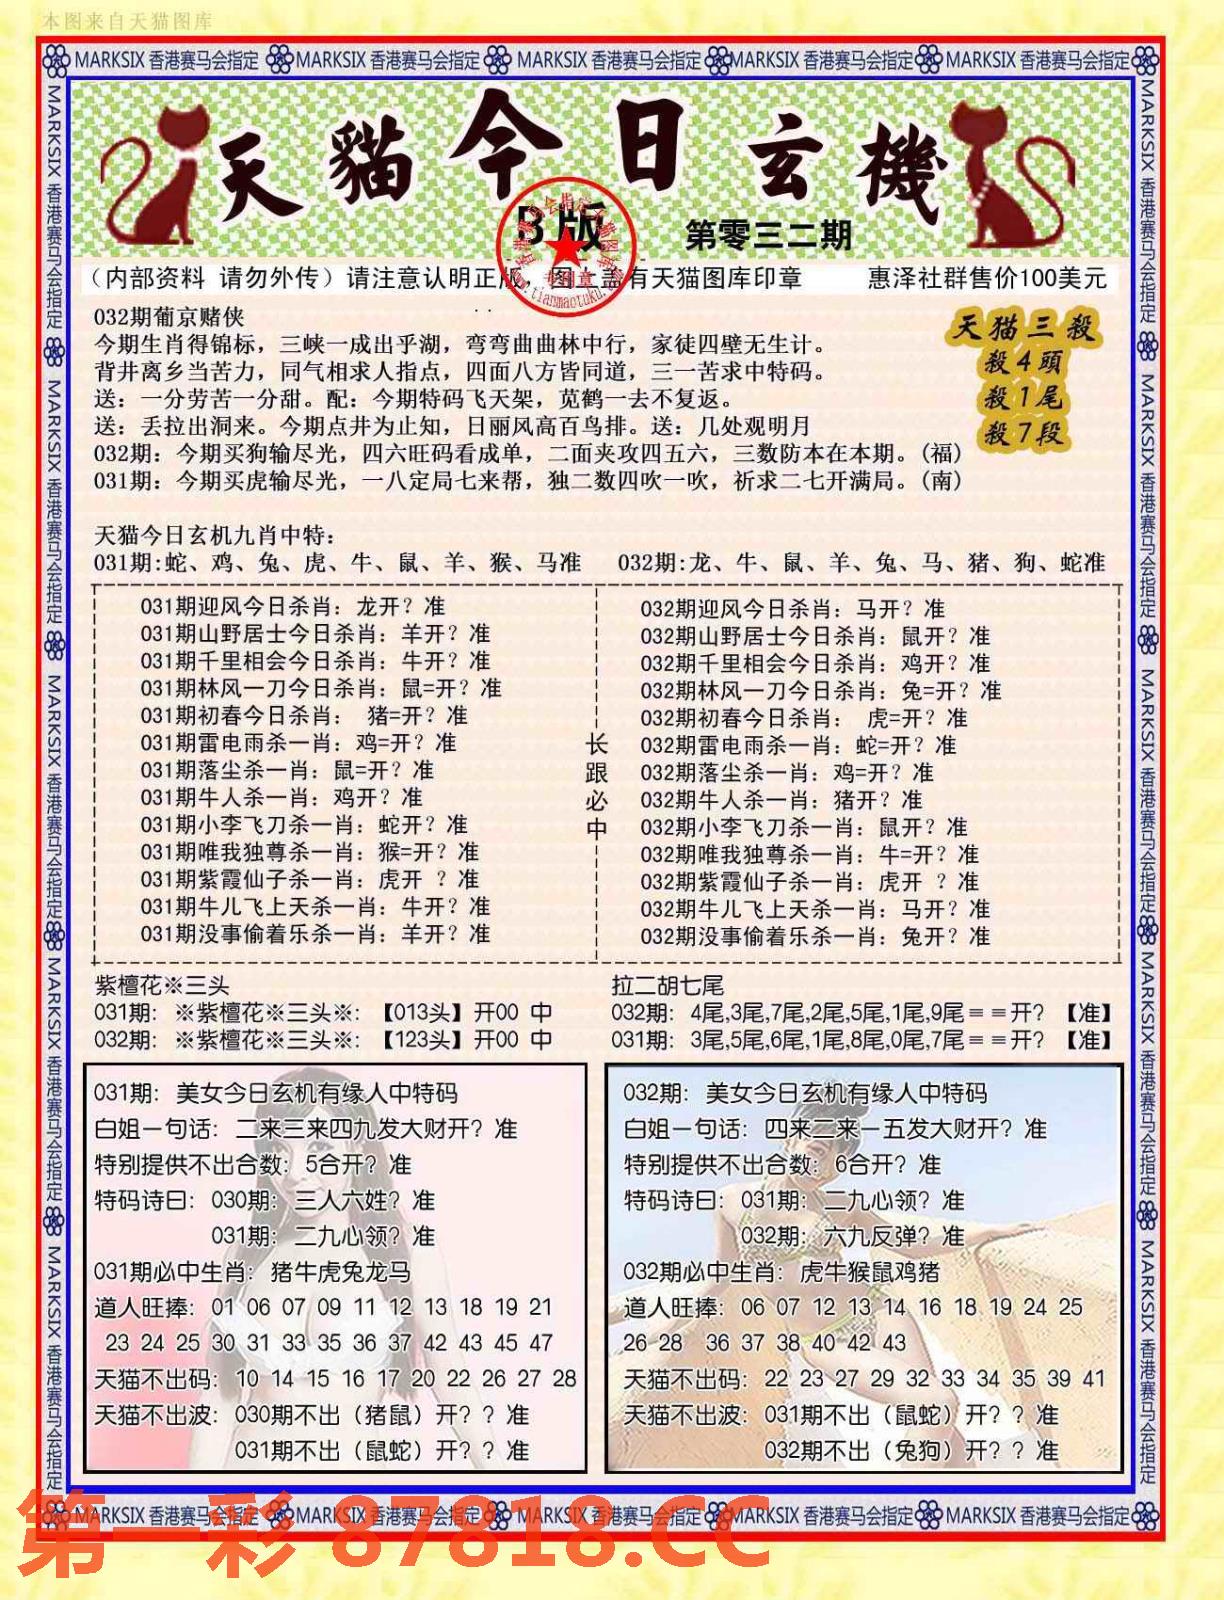 本图来自天猫图库
MARKSIX 香港赛马会指定 MARKSIX 香港赛马会指定 MARKSIX 香港赛马会指定 MARKSIX 香港赛马会指定 MARKSIX 香港赛马会指定
天貓今日玄機
B版
第零三二期
(内部资料 请勿外传)请注意认明正版 图上盖有天猫图库印章 惠泽社群售价100美元
032期葡京赌侠
今期生肖得锦标，三峡一成出乎湖，弯弯曲曲林中行，家徒四壁无生计。
背井离乡当苦力，同气相求人指点，四面八方皆同道，三一苦求中特码。
送：一分劳苦一分甜。配：今期特码飞天架，苋鹤一去不复返。
送：丢拉出洞来。今期点井为止知，日丽风高百鸟排。送：几处观明月
032期：今期买狗输尽光，四六旺码看成单，二面夹攻四五六，三数防本在本期。(福)
031期：今期买虎输尽光，一八定局七来帮，独二数四吹一吹，祈求二七开满局。(南)
天猫三殺
殺4頭
殺1尾
殺7段
天猫今日玄机九肖中特：
031期:蛇、鸡、兔、虎、牛、鼠、羊、猴、马准 032期:龙、牛、鼠、羊、兔、马、猪、狗、蛇准
031期迎风今日杀肖：龙开？准
031期山野居士今日杀肖：羊开？准
031期千里相会今日杀肖：牛开？准
031期林风一刀今日杀肖：鼠=开？准
031期初春今日杀肖： 猪=开？准
031期雷电雨杀一肖：鸡=开？准
031期落尘杀一肖：鼠=开？准
031期牛人杀一肖：鸡开？准
031期小李飞刀杀一肖：蛇开？准
031期唯我独尊杀一肖：猴=开？准
031期紫霞仙子杀一肖：虎开 ？准
031期牛儿飞上天杀一肖：牛开？准
031期没事偷着乐杀一肖：羊开？准
长跟必中
032期迎风今日杀肖：马开？准
032期山野居士今日杀肖：鼠开？准
032期千里相会今日杀肖：鸡开？准
032期林风一刀今日杀肖：兔=开？准
032期初春今日杀肖： 虎=开？准
032期雷电雨杀一肖：蛇=开？准
032期落尘杀一肖：鸡=开？准
032期牛人杀一肖：猪开？准
032期小李飞刀杀一肖：鼠开？准
032期唯我独尊杀一肖：牛=开？准
032期紫霞仙子杀一肖：虎开 ？准
032期牛儿飞上天杀一肖：马开？准
032期没事偷着乐杀一肖：兔开？准
紫檀花※三头
031期：※紫檀花※三头※：【013头】开00 中
032期：※紫檀花※三头※：【123头】开00 中
拉二胡七尾
032期：4尾,3尾,7尾,2尾,5尾,1尾,9尾＝＝开？【准】
031期：3尾,5尾,6尾,1尾,8尾,0尾,7尾＝＝开？【准】
031期：美女今日玄机有缘人中特码
白姐一句话：二来三来四九发大财开？准
特别提供不出合数：5合开？准
特码诗曰：030期：三人六姓？准
031期：二九心领？准
031期必中生肖：猪牛虎兔龙马
道人旺捧：01 06 07 09 11 12 13 18 19 21
23 24 25 30 31 33 35 36 37 42 43 45 47
天猫不出码：10 14 15 16 17 20 22 26 27 28
天猫不出波：030期不出（猪鼠）开？？准
031期不出（鼠蛇）开？？准
032期：美女今日玄机有缘人中特码
白姐一句话：四来二来一五发大财开？准
特别提供不出合数：6合开？准
特码诗曰：031期：二九心领？准
032期：六九反弹？准
032期必中生肖：虎牛猴鼠鸡猪
道人旺捧：06 07 12 13 14 16 18 19 24 25
26 28 36 37 38 40 42 43
天猫不出码：22 23 27 29 32 33 34 35 39 41
天猫不出波：031期不出（鼠蛇）开？？准
032期不出（兔狗）开？？准
MARKSIX 香港赛马会指定 MARKSIX 香港赛马会指定 MARKSIX 香港赛马会指定 MARKSIX 香港赛马会指定 MARKSIX 香港赛马会指定
第一彩 87818.CC
MARKSIX 香港赛马会指定 MARKSIX 香港赛马会指定 MARKSIX 香港赛马会指定 MARKSIX 香港赛马会指定 MARKSIX 香港赛马会指定
MARKSIX 香港赛马会指定 MARKSIX 香港赛马会指定 MARKSIX 香港赛马会指定 MARKSIX 香港赛马会指定 MARKSIX 香港赛马会指定